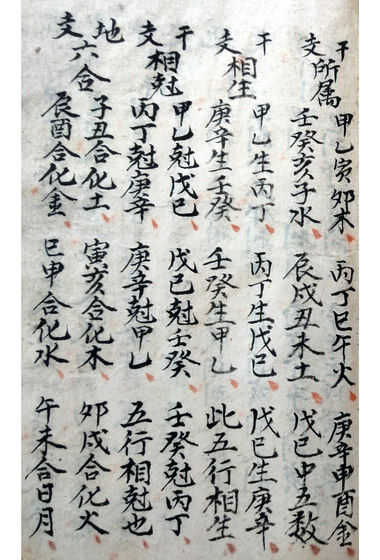 干支所属
甲乙寅卯木 丙丁巳午火 庚辛申酉金
壬癸亥子水 辰戌丑未土 戊己中五数
干支相生
甲乙生丙丁 丙丁生戊己 戊己生庚辛
庚辛生壬癸 壬癸生甲乙 此五行相生
干支相尅
甲乙尅戊己 戊己尅壬癸 壬癸尅丙丁
丙丁尅庚辛 庚辛尅甲乙 五行相尅也
地支六合
子丑合化土 寅亥合化木 卯戌合化火
辰酉合化金 巳申合化水 午未合日月